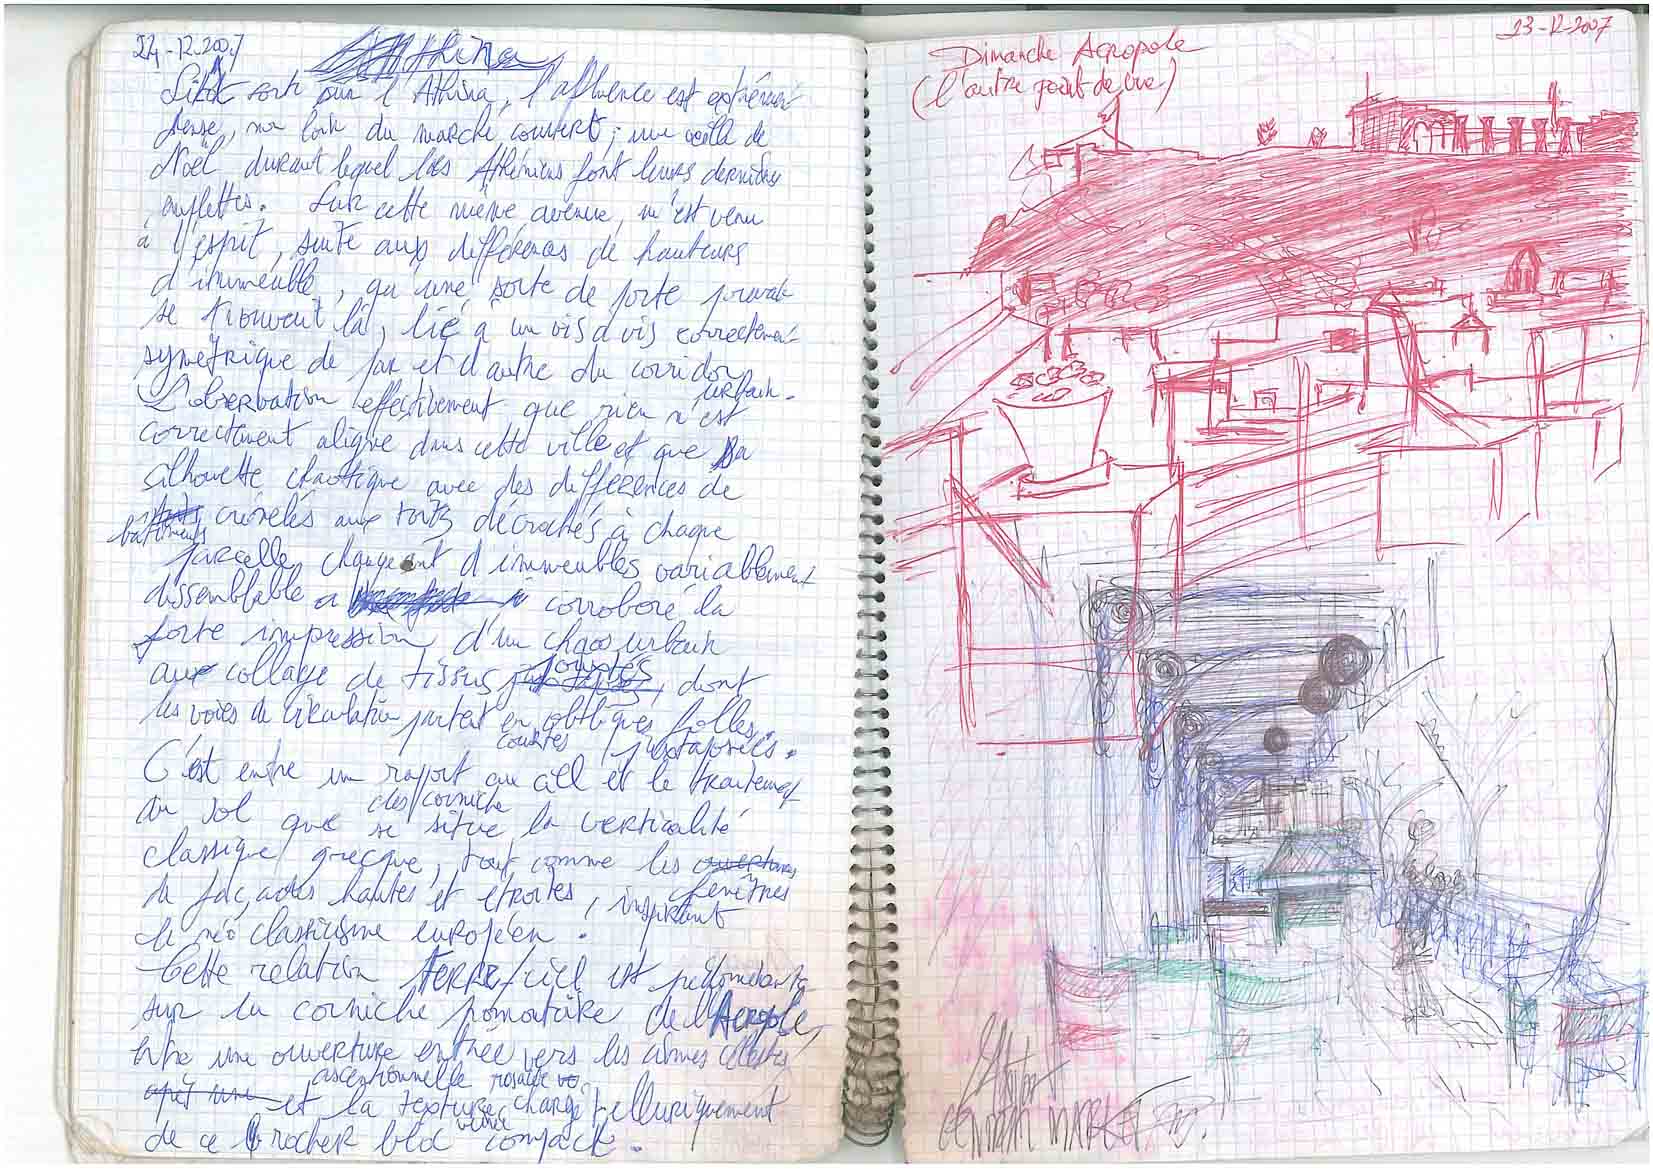 24-12-2007
Athina
sorti sur l'Athina, l'affluence est extrêmement
dense, non loin du marché couvert; une veille de
Noël durant lequel les Athéniens font leurs dernières
emplettes. Sur cette même avenue, m'est venu
à l'esprit, suite aux différences de hauteurs
d'immeuble, qu'une sorte de porte pouvait
se trouvent là, lié à un vis à vis correctement
symétrique de par et d'autre du corridor
urbain.
L'observation effectivement que rien n'est
correctement aligné dans cette ville et que sa
silhouette chaotique avec des différences de
bâtiments crénelés aux toits décrochés à chaque
parcelle changeant d'immeubles variablement
dissemblable a corroboré la
forte impression d'un chaos urbain
aux collage de tissus joustés, dont
les voies de circulation partent en obliques folles
courtes juxtaposées.
C'est entre un rapport au ciel et le traitement
du sol que se situe la verticalité
des corniche
classique grecque, tout comme les ouvertures
fenêtres
de façades hautes et étroites, inspirant
le néo classicisme européen.
Cette relation terre/ciel est prédominante
sur la corniche de l'Acropole,
une ouverture entrée vers les âmes célestes
ascentionnelle
et la texture chargé telluriquement
de ce rocher bloc compact.
Dimanche Acropole
(l'autre point de vue)
23-12-2007
CENTRAL MARKET